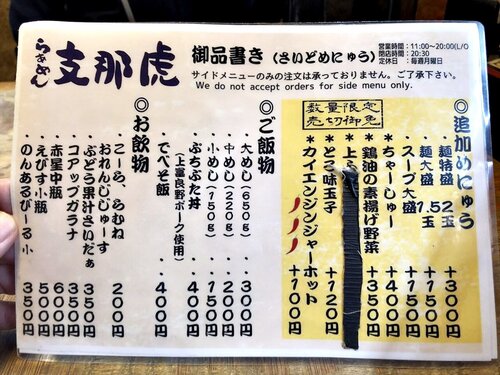 らぁめん
支那虎
御品書き(さいどめにゅう)
営業時間:11:00~20:00(L/O
閉店時間:20:30
定休日:毎週月曜日
サイドメニューのみの注文は承っておりません。ご了承下さい。
We do not accept orders for side menu only.
◎追加めにゅう
麺特盛 2玉 +300円
麺大盛 1.5玉 +200円
スープ大盛 +150円
*ちゃーしゅー +450円
*鶏油の素揚げ野菜 +350円
数量限定
売切御免
*上
*とろ味玉子 +100円
*カイエンジンジャーホット +100円
◎ご飯物
大めし(650g) 300円
中めし(220g) 200円
小めし(150g) 150円
ぶたぶた丼 400円
(上富良野ポーク使用)
でべそ飯 400円
◎お飲物
こーら、らむね 200円
おれんじじゅーす
ぶどう果汁さいだぁ 350円
コアップガラナ 350円
赤星中瓶 600円
えびす小瓶 500円
のんあるびーる 小 350円